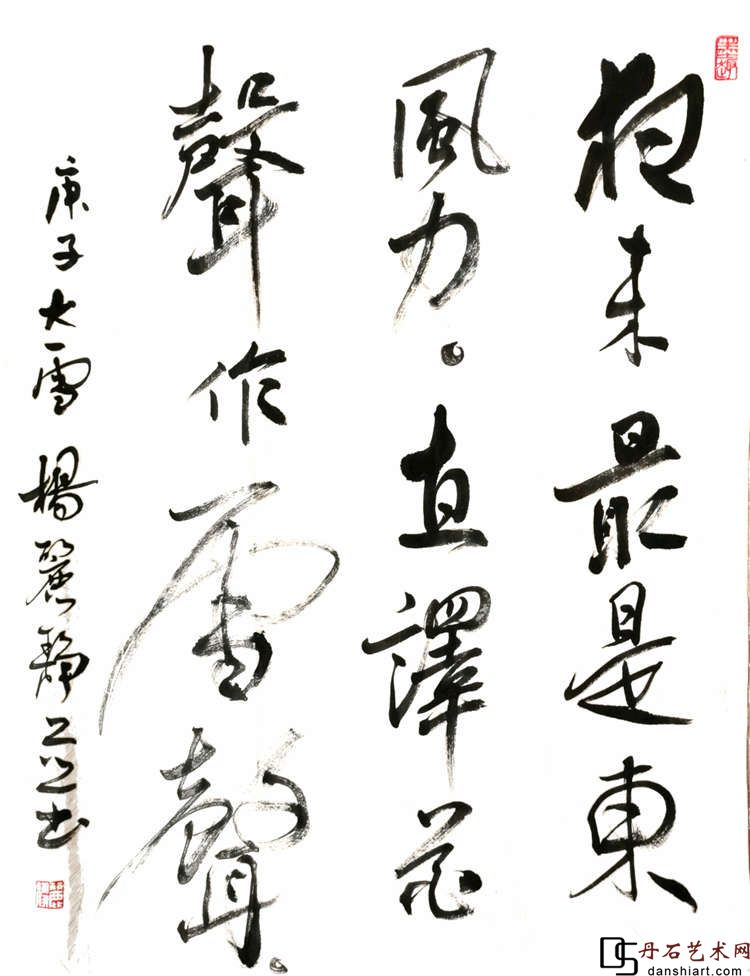 夜来最是東
風力。直譯花
聲作雪聲。
庚子大雪楊麗靜並书
丹石艺术网
danshiart.com